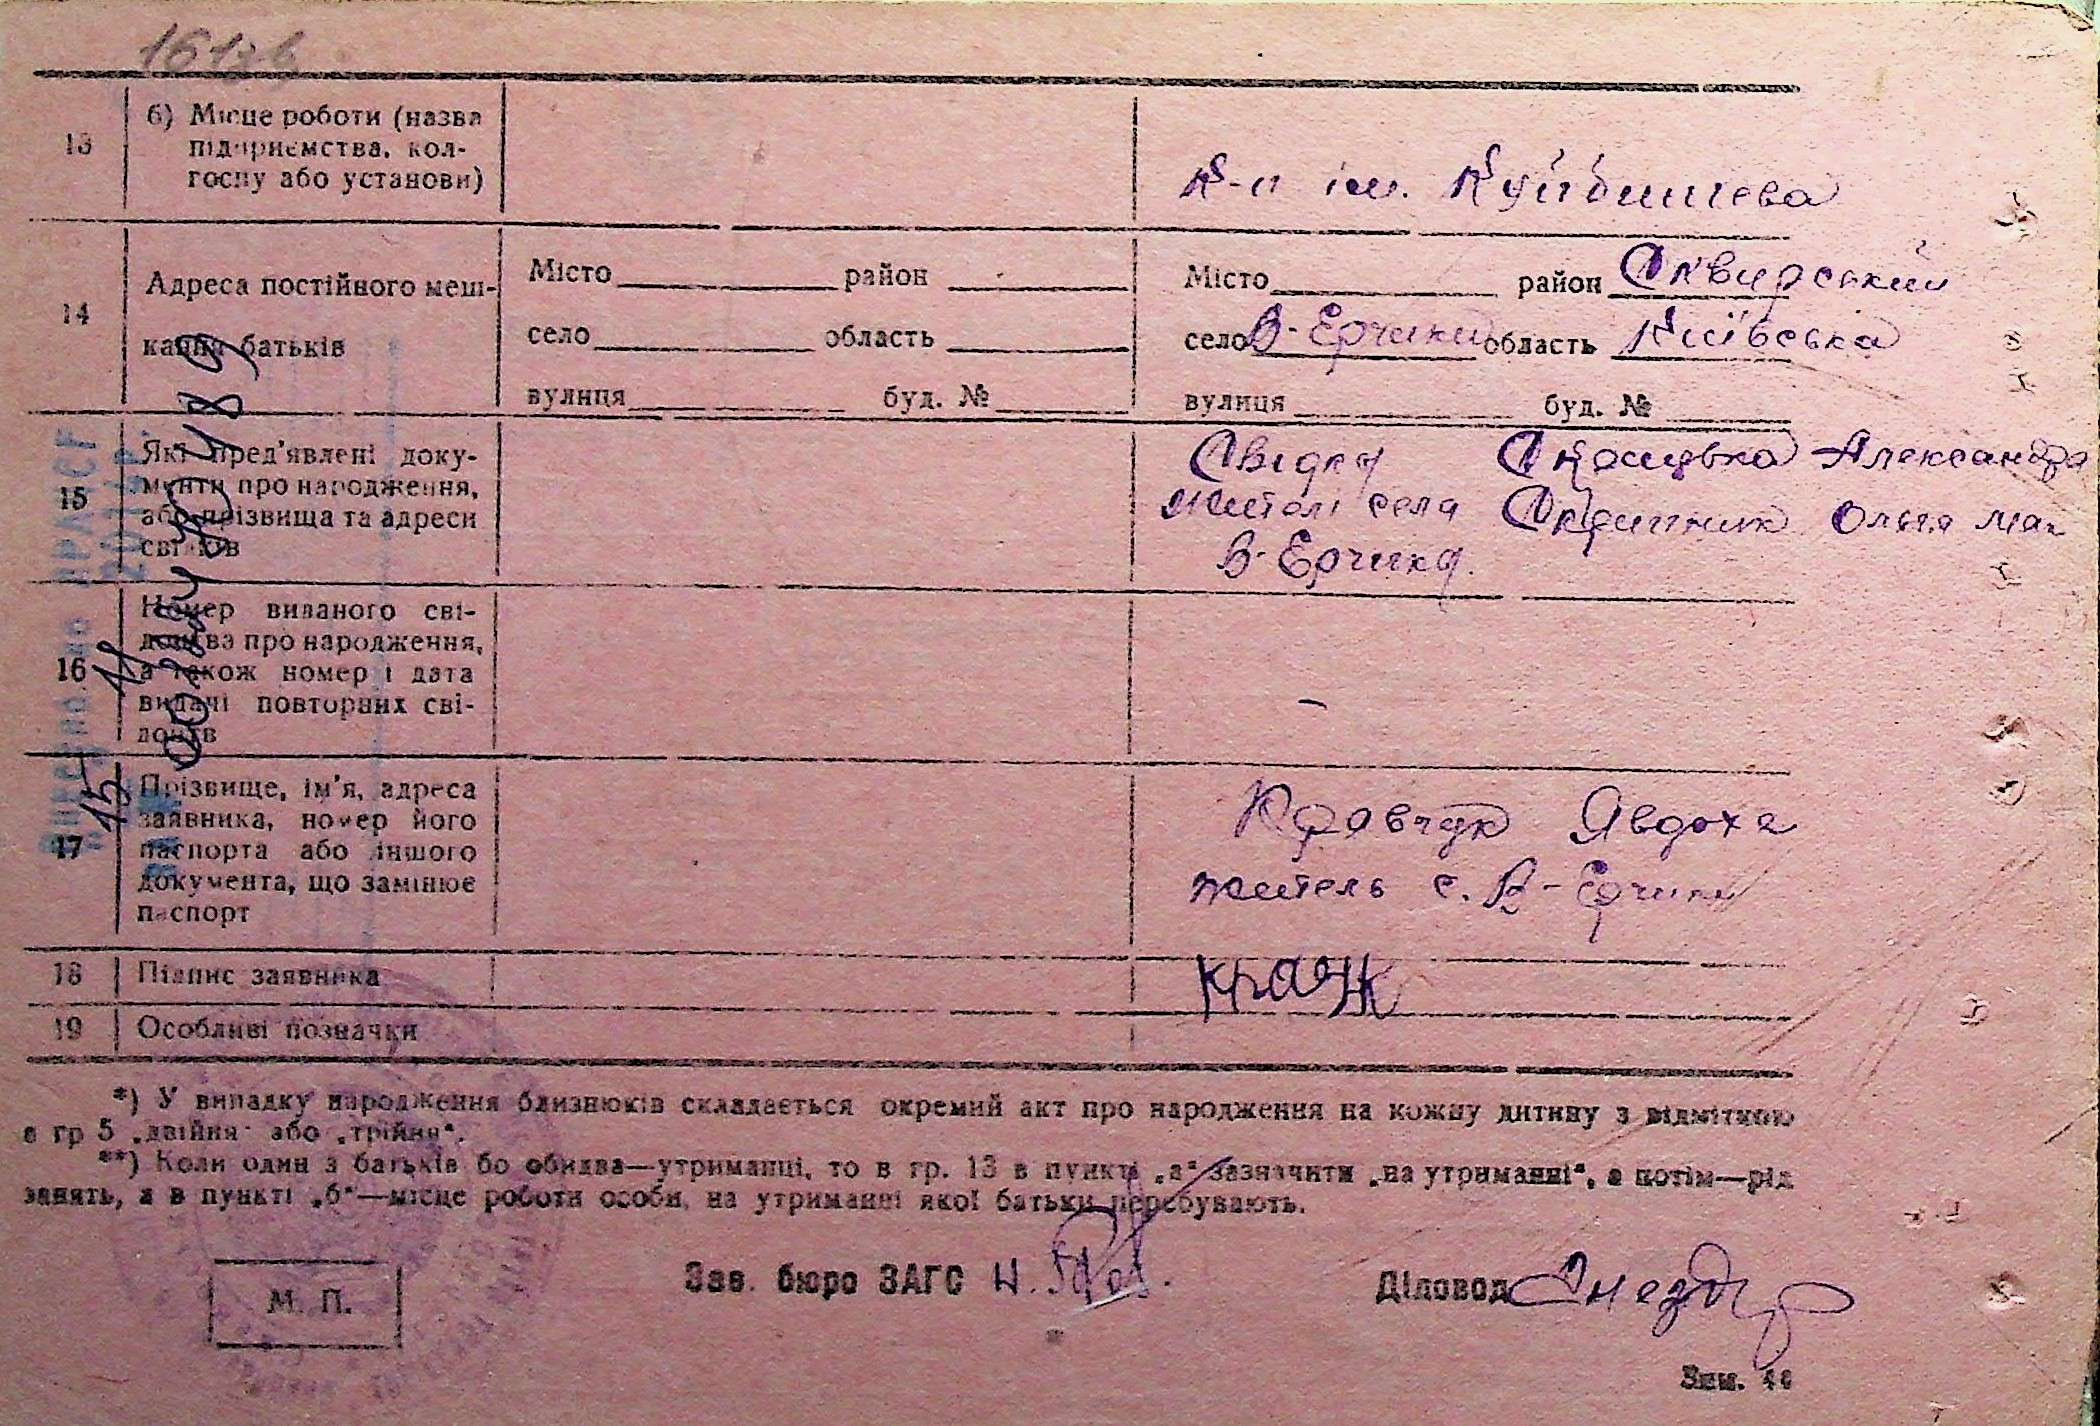 161зв
13
б) Місце роботи (назва
підприємства, кол-
госпу або установи)
К-п ім. Куйбишева
14
Адреса постійного меш-
кання батьків
Місто район
село область
вулиця буд. №
Місто район Сквирський
село В-Ерчики область Київська
вулиця буд. №
15
Які пред'явлені доку-
менти про народження,
або прізвища та адреси
свідків
Свідки Александра
жителі села Ольга
В-Ерчики.
16
Номер виданого сві-
доцтва про народження,
а також номер і дата
видачі повторних сві-
доцтв
–
17
Прізвище, ім'я, адреса
заявника, номер його
паспорта або іншого
документа, що замінює
паспорт
Кравчук Явдоха
житель с. В-Ерчики
18
Підпис заявника
19
Особливі позначки
*) У випадку народження близнюків складається окремий акт про народження на кожну дитину з відміткою
в гр 5 „двійня" або „трійня".
**) Коли один з батьків бо обидва—утриманці, то в гр. 13 в пункті „а" зазначити „на утриманні", а потім—рід
занять, а в пункті „б"—місце роботи особи, на утриманні якої батьки перебувають.
М. П.
Зав. бюро ЗАГС
Діловод